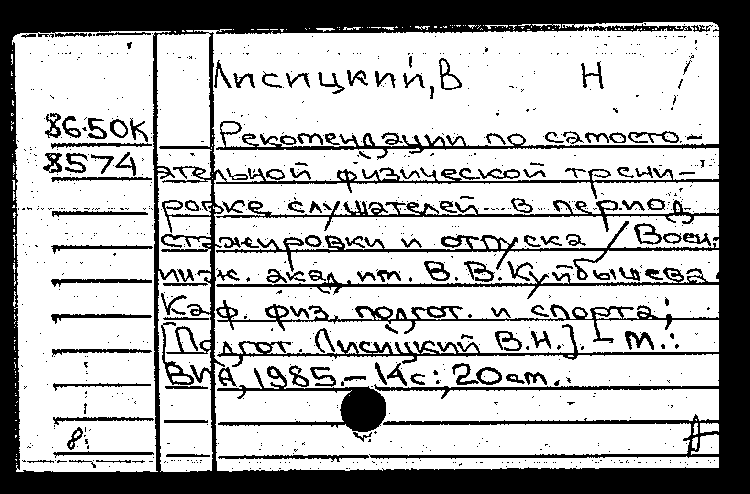 Лисицкий, В Н
86-50К Рекомендации по самосто-
8574 ятельной физической трени-
ровке слушателей в период
стажировки и отпуска / Воен.-
инж. акад. им. В.В. Куйбышева.
Каф. физ. подгот. и спорта;
[Подгот. Лисицкий В.Н.]. – М.:
ВИА, 1985. – 14 с.; 20 см.
8